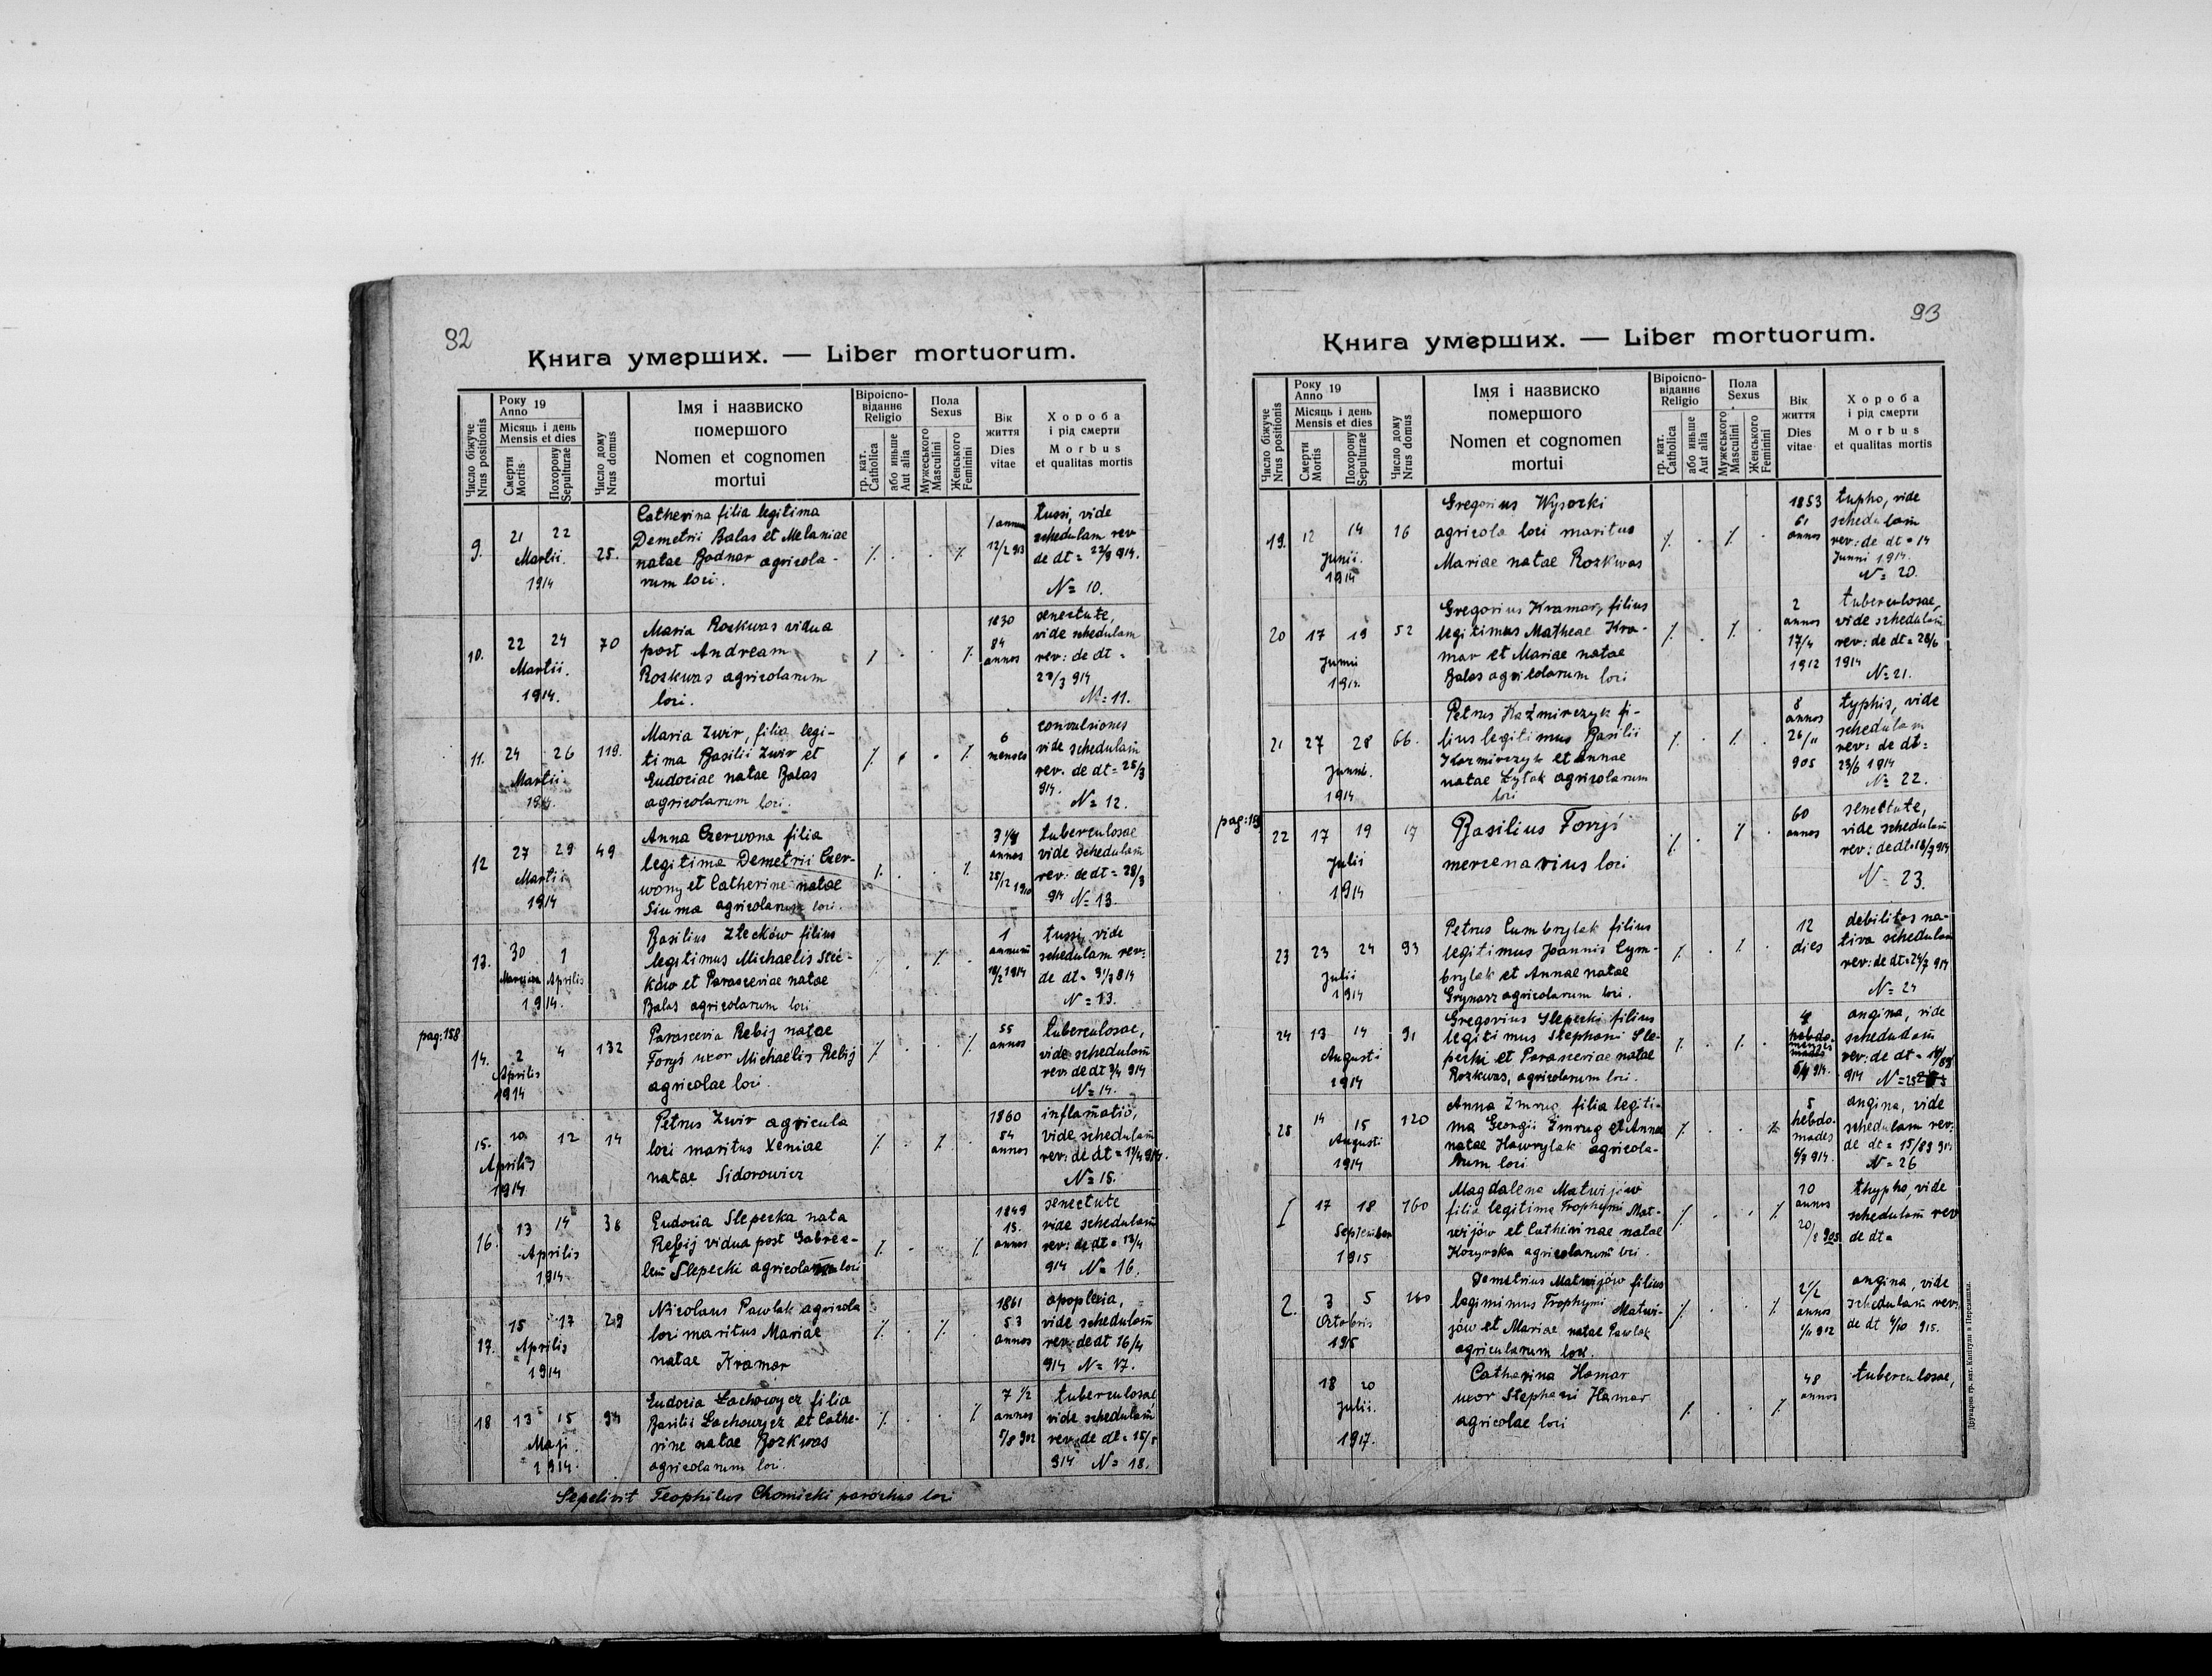 92
Книга умерших. — Liber mortuorum.
Число біжуче Nrus positionis
Року Anno 19
Місяць і день Mensis et dies
Смерти Mortis
Похорону Sepulturae
Число дому Nrus domus
Імя і назвиско
помершого
Nomen et cognomen
mortui
Віроіспо-
віданнє
Religio
гр. кат. Catholica
або иньше Aut alia
Пола
Sexus
Мужеського Masculini
Женського Feminini
Вік
життя
Dies
vitae
Хороба
і рід смерти
Morbus
et qualitas mortis
9. 21 22 Martii. 1914 25.
Catherina filia legitima
Demetrii Balas et Melaniae
natae Bodnar agricola-
rum loci.
1 annum
12/2 913
tussi, vide
schedulam rev
de dt = 22/3 914.
N= 10.
10. 22 24 Martii. 1914. 70
Maria Rozkwas vidua
post Andream
Rozkwas agricolarum
loci.
1830
84
annos
senectute,
vide schedulam
rev: de dt =
23/3 914
N=11.
11. 24 26 Martii 1914. 119.
Maria Zwir, filia legi-
tima Basilii Zwir et
Eudociae natae Balas
agricolarum loci.
6
menses
convulsiones
vide schedulam
rev. de dt = 25/3
914.
N= 12.
12 27 29 Martii 1914 49
Anna Czerwona filia
legitima Demetrii Czer-
wony et Catherine natae
Siuma agricolarum loci.
3 1/4
annos
25/12 1910
tuberculosae
vide schedulam
rev: de dt = 28/3
914 N= 13.
13. 30 1 Aprilis 1914.
Basilius Stećków filius
legitimus Michaelis Steć-
ków et Parasceviae natae
Balas agricolarum loci
1
annum
1914
tussi, vide
schedulam rev:
de dt = 31/3 914
N = 13.
pag: 158
14. 2 4 Aprilis 1914 132
Parascevia Rebij natae
Foryś uxor Michaelis Rebij
agricolae loci.
55
annos
tuberculosae,
vide schedulam
rev: de dt 3/4 914
N= 14.
15. 10 12 Aprilis 1914 14
Petrus Zwir agricula
loci maritus Xeniae
natae Sidorowicz
1860
54
annos
inflamatio,
vide schedulam
rev: de dt = 11/4 914.
N= 15.
16. 13 14 Aprilis 1914 38
Eudocia Slepecka nata
Rebij vidua post Gabree-
lem Slepecki loci
1849
annos
senectute
vide schedulam
rev: de dt = 13/4
914 N= 16.
17. 15 17 Aprilis 1914 29
Nicolaus Pawlak agricola
loci maritus Mariae
natae Kramar
1861
53
annos
apoplexia,
vide schedulam
rev: de dt 16/4
914 N= 17.
18 13 15 Maji 1914. 94
Eudocia Łachowycz filia
Basilii Łachowycz et Cathe-
rine natae Rozkwas
agricolarum loci.
7 1/2
annos
5/8 902
tuberculosae
vide schedulam
rev: de dt = 15/5
914 N= 18.
Sepelivit Teophilus Chomicki parochus loci
93
Книга умерших. — Liber mortuorum.
Число біжуче Nrus positionis
Року Anno 19
Місяць і день Mensis et dies
Смерти Mortis
Похорону Sepulturae
Число дому Nrus domus
Імя і назвиско
помершого
Nomen et cognomen
mortui
Віроіспо-
віданнє
Religio
гр. кат. Catholica
або иньше Aut alia
Пола
Sexus
Мужеського Masculini
Женського Feminini
Вік
життя
Dies
vitae
Хороба
і рід смерти
Morbus
et qualitas mortis
19. 12 14 Junii. 1914 16
Gregorius Wysocki
agricola loci maritus
Mariae natae Rozkwas
1853
61
annos
typho, vide
schedulam
rev: de dt = 14
Junni 1914.
N= 20.
20 17 19 Junii 1914. 52
Gregorius Kramar, filius
legitimus Matheae Kra-
mar et Mariae natae
Balas agricolarum loci
2
annos
17/4
1912
tuberculosae,
vide schedulam
rev: de dt = 28/6
1914
N= 21.
21 27 28 Junni. 1914 66.
Petrus Kaźmirczyk fi-
lius legitimus Basilii
Kazmirczyk et Annae
natae Żytak agricolarum
loci
8
annos
26/11
905
typhis, vide
schedulam
rev: de dt=
23/6 1914
N= 22.
pag:
22 17 19 Julii 1914 17
Basilius Foryś
mercenarius loci
60
annos
senectute,
vide schedulam
rev: de dt = 18/7 914
N= 23.
23 23 24 Julii 1914 93
Petrus Cumbrylak filius
legitimus Joannis Cym-
brylak et Annae natae
Grynasz agricolarum loci.
12
dies
debilitas na-
tiva schedulam
rev: de dt = 24/7 914
N= 24
24 13 14 Augusti 1914 91
Gregorius Slepecki filius
legitimus Stephani Sle-
pecki et Parasceviae natae
Rozkwas, agricolarum loci.
hebdo-
914.
angina, vide
schedulam
rev: de dt =
914 N = 25
25 14 15 Augusti 1914 120
Anna Zmrug filia legiti-
ma Georgii Zmrug et Annae
natae Hawrylak agricola-
rum loci
5
hebdo-
mades
914.
angina, vide
schedulam rev:
de dt = 15/8 914
N= 26
1 17 18 September 1915 160
Magdalena Matwijów
filia legitima Trophymi Mat-
wijów et Catherinae natae
Kozyrska agricolarum loci.
10
annos
905
thypho, vide
schedulam rev
de dt =
2. 3 5 Octobris 1915 160
Demetrius Matwijów filius
legiminus Trophymi Matwi-
jów et Mariae natae Pawlak
agricularum loci.
2 1/2
annos
912
angina, vide
schedulam rev:
de dt 4/10 915.
18 20 Julii. 1917.
Catharina Hamar
uxor Stephani Hamar
agricolae loci
48
annos
tuberculosae,
Друкарня гр. кат. Капітули в Перемишли.